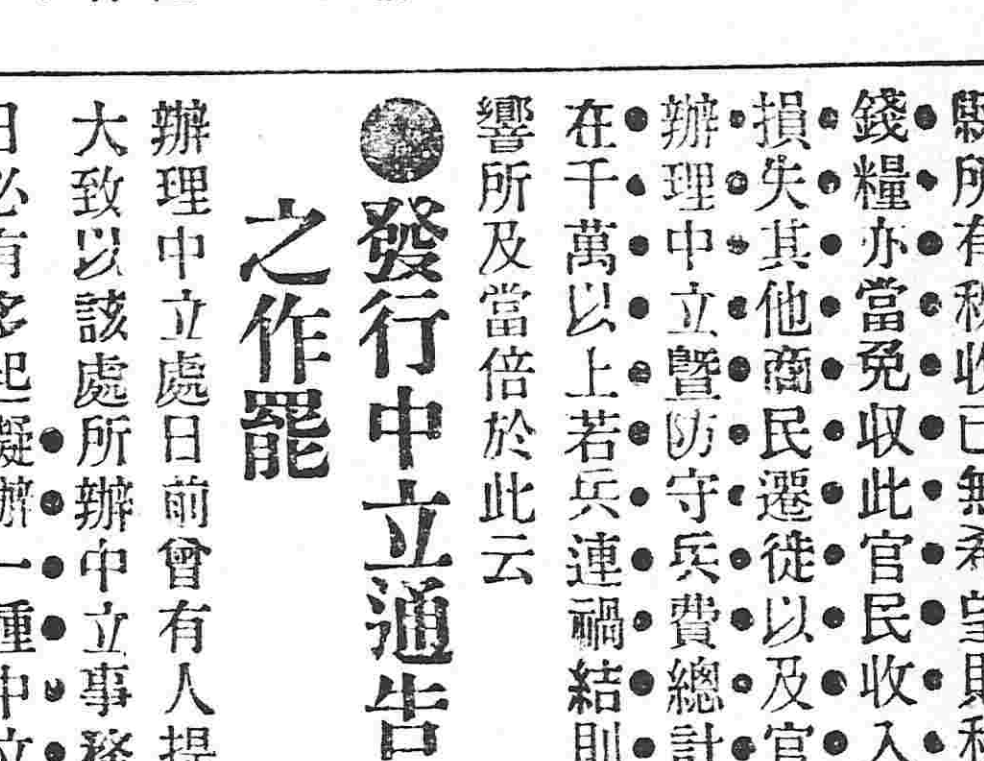 縣所有秋收已無希望則秋
錢糧亦當免収此官民收入
損失其他商民遷徙以及官
辦理中立曁防守兵費總計
在千萬以上若兵連禍結則
響所及當倍於此云
●發行中立通告
之作罷
辦理中立處日前曾有人提
大致以該處所辦中立事務
日必有多起擬辦一種中立